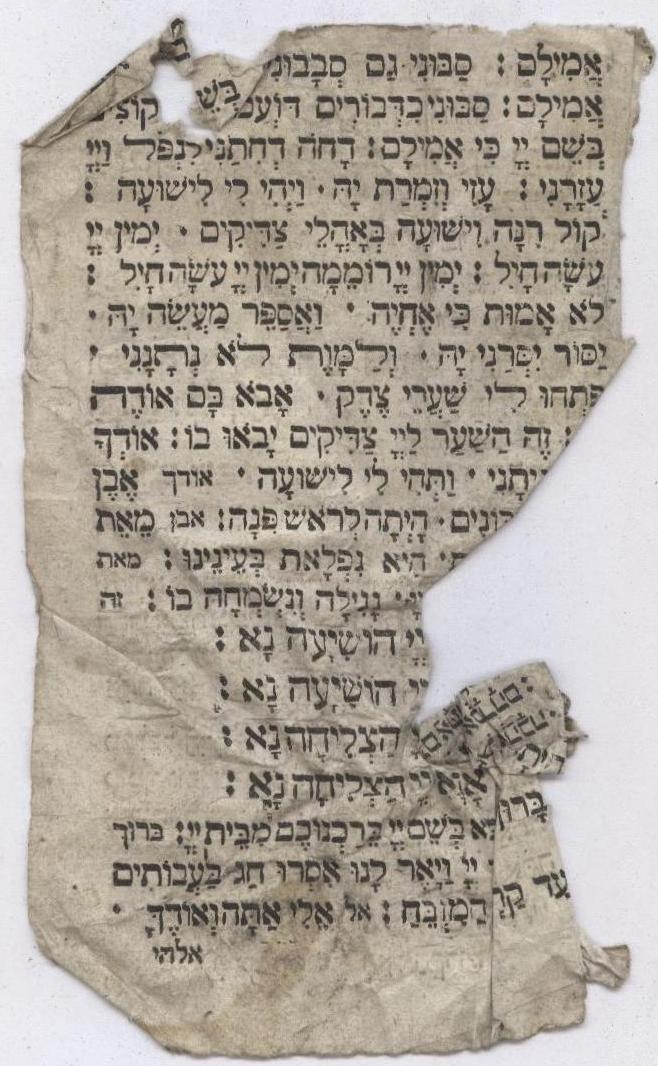 אֲמִילָם : סַבּוּנִי גַם סְבָבוּנִי בְּשֵׁ
אֲמִילָם : סַבּוּנִי כִדְבוֹרִים דּוֹעֲכ קוֹצִים
בְּשֵׁם יְיָ כִּי אֲמִילָם : דָּחֹה דְחִתַנִי לִנְפֹּל וַיְיָ
עֲזָרָנִי : עָזִּי וְזִמְרָת יָהּ · וַיְהִי לִי לִישׁוּעָה :
קוֹל רִנָּה וִישׁוּעָה בְּאָהֳלֵי צַדִּיקִים · יְמִין יְיָ
עֹשָׂה חָיִל : יְמִין יְיָ רוֹמֵמָה יְמִין יְיָ עֹשָׂה חָיִל :
לֹא אָמוּת כִּי אֶחְיֶה · וַאֲסַפֵּר מַעֲשֵׂה יָהּ ·
יַסּוֹר יִסְּרַנִי יָהּ · וְלַמָּוֶת לֹא נְתָנָנִי ·
פִּתְחוּ לִי שַׁעֲרֵי צֶדֶק · אָבֹא בָם אוֹדֶה
: זֶה הַשַּׁעַר לַיְיָ צַדִּיקִים יָבֹאוּ בוֹ : אוֹדְךָ
יתָנִי · וַתְּהִי לִי לִישׁוּעָה · אודך אֶבֶן
וֹנִים · הָיְתָה לְרֹאשׁ פִּנָּה : אבן מֵאֵת
הִיא נִפְלָאת בְּעֵינֵינוּ : מאת
נָגִילָה וְנִשְׂמְחָה בוֹ : זה
יְיָ הוֹשִׁיעָה נָא :
יְיָ הוֹשִׁיעָה נָא :
הַצְלִיחָה נָא :
אָנָּא יְיָ הַצְלִיחָה נָא :
בָּרוּ א בְּשֵׁם יְיָ בֵּרַכְנוּכֶם מִבֵּית יְיָ : ברוך
יְיָ וַיָּאֶר לָנוּ אִסְרוּ חַג בַּעֲבוֹתִים
עַד קַר הַמִּזְבֵּחַ : אל אֵלִי אַתָּה וְאוֹדֶךָּ ·
אלהי